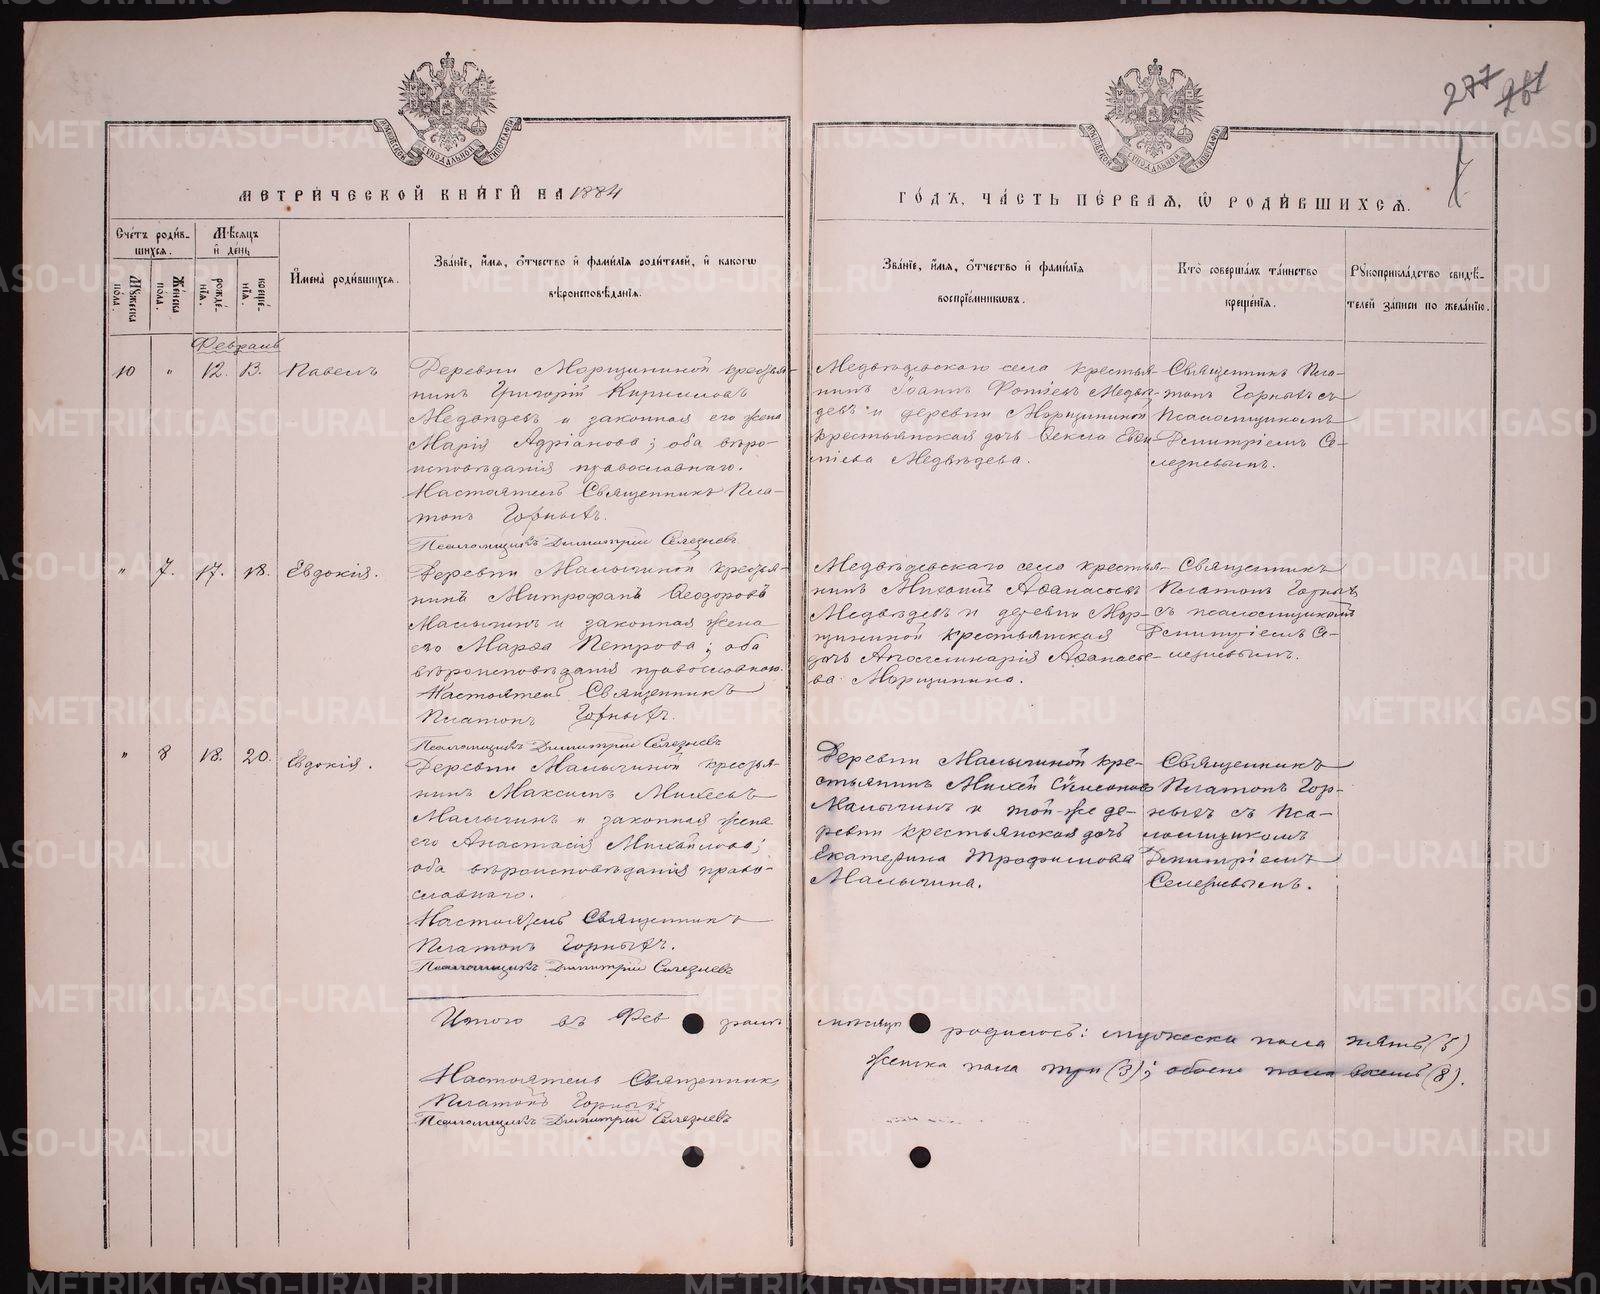 277 281
МЕТРИЧЕСКОЙ КНИГИ НА 1884
ГОДЪ, ЧАСТЬ ПЕРВАЯ, Ѡ РОДИВШИХСЯ.
Счетъ родив-
шихся.
Мѣсяцъ
и день
Мужеска
пола.
Женска
пола.
рожде-
нія.
креще-
нія.
Имена родившихся.
Званіе, имя, отчество и фамилія родителей, и какого
вѣроисповѣданія.
Званіе, имя, отчество и фамилія
воспріемниковъ.
Кто совершалъ таинство
крещенія.
Рукоприкладство свидѣ-
телей записи по желанію.
Февраль
10 " 12. 13. Павелъ
Деревни Морщининой крестья-
нинъ Григорій Кирилловъ
Медвѣдевъ и законная его жена
Марія Адріанова; оба вѣро-
исповѣданія православнаго.
Настоятель Священникъ Пла-
тонъ Горныхъ.
Псаломщикъ Димитрій Селезневъ
Медвѣдевскаго села крестья-
нинъ Іоаннъ Медвѣ-
девъ и деревни Морщининой
крестьянская дочь Ѳекла
Медвѣдева.
Священникъ Пла-
тонъ Горныхъ съ
псаломщикомъ
Димитріемъ Се-
лезневымъ.
" 7. 17. 18. Евдокія.
Деревни Малычиной крестья-
нинъ Митрофанъ Ѳеодоровъ
Малычинъ и законная жена
его Марѳа Петрова; оба
вѣроисповѣданія православнаго.
Настоятель Священникъ
Платонъ Горныхъ.
Псаломщикъ Димитрій Селезневъ
Медвѣдевскаго села крестья-
нинъ Аѳанасьевъ
Медвѣдевъ и деревни Мор-
щининой крестьянская
дочь Апполинарія Аѳанасье-
ва Морщинина.
Священникъ
Платонъ Горныхъ
съ псаломщикомъ
Димитріемъ Се-
лезневымъ.
" 8 18. 20. Евдокія.
Деревни Малычиной крестья-
нинъ Максимъ Михеевъ
Малычинъ и законная жена
его Анастасія Михайлова;
оба вѣроисповѣданія право-
славнаго.
Настоятель Священникъ
Платонъ Горныхъ.
Псаломщикъ Димитрій Селезневъ
Деревни Малычиной кре-
стьянинъ Михей Симеоновъ
Малычинъ и той-же де-
ревни крестьянская дочь
Екатерина Трофимова
Малычина.
Священникъ
Платонъ Гор-
ныхъ съ пса-
ломщикомъ
Димитріемъ
Селезневымъ.
Итого въ Фев ралѣ мѣсяцѣ родилось: мужеска пола пять (5)
женска пола три (3); обоего пола восемь (8).
Настоятель Священникъ
Платонъ Горныхъ
Псаломщикъ Димитрій Селезневъ
METRIKI.GASO-URAL.RU